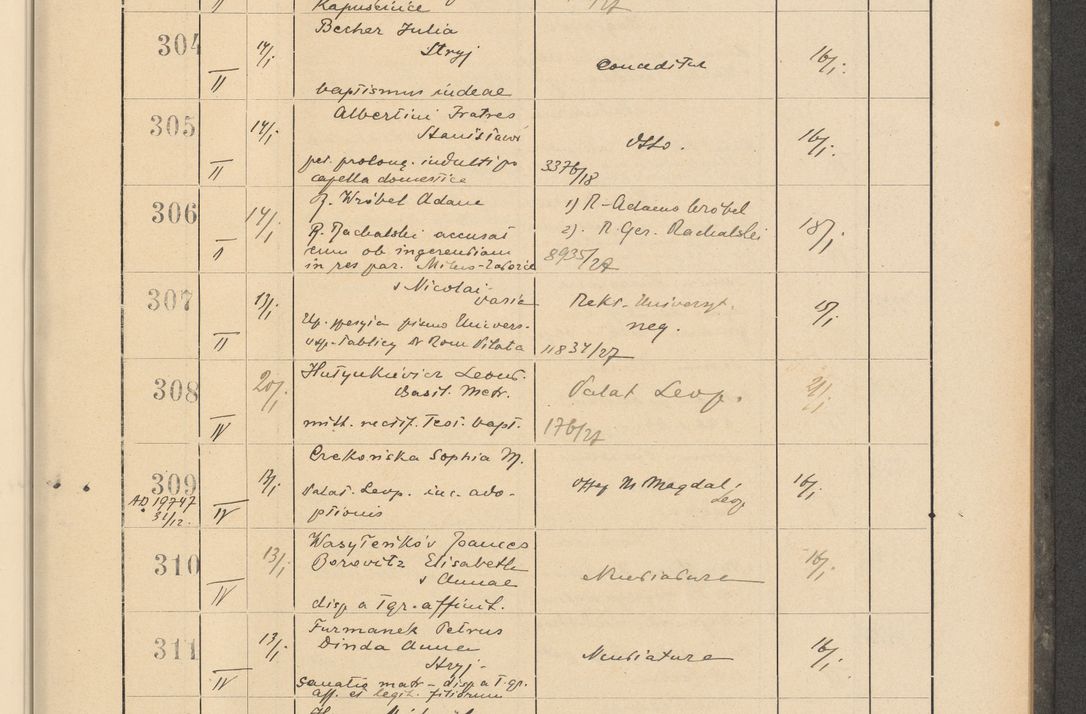 Kapucinice
304 14/I. II Becher Julia
Stryj
baptismus iudeae
Conceditur 16/I.
305 14/I. II Albertini Fratres
Stanisławi
pet. prolong. indulti pro
capella domestica
Otto.
3376/18 16/I.
306 14/I. II Z. Wróbel Adam
R. Rachalski accusat
eum ob ingerentiam
in res par.
1) R. Adamo Wróbel
2). R. Ger. Rachalski
8935/27 18/I.
307 13/I. II s Nicolai
varia
pismo Univers.
Rekt. Uniwersyt.
neg.
11834/27 15/I.
308 20/I. IV
Basil. Metr.
mitt. rectif. Test. bapt.
Palat Leop.
176/27 21/I.
309
AD 19747
31/12. IV Czekońska Sophia M.
Palat. Leop. in c. ado-
ptionis
Offo M Magdal.
Leop 16/I.
310 13/I. IV Wasyleńków Joannes
Borovitz Elisabeth
s Annae
disp a I gr. affinit.
Nuntiaturae 16/I.
311 13/I. IV Furmanek Petrus
Dinda Anna
Stryj
Sanatio matr - disp a I gr.
aff. et legit. filiorum
Nuntiaturae 16/I.